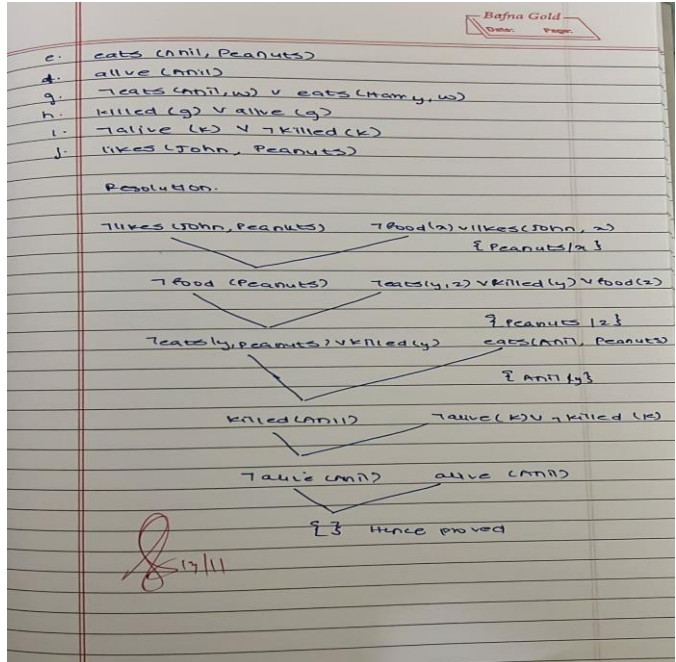 Bafna Gold
Date: Page:
e. eats (Anil, Peanuts)
f. alive (Anil)
g. ¬eats (Anil, w) ∨ eats (Harry, w)
h. killed (g) ∨ alive (g)
i. ¬alive (k) ∨ ¬killed (k)
j. likes (John, Peanuts)
Resolution.
¬likes (John, Peanuts) ¬food(x) ∨ likes (John, x)
{Peanuts/x}
¬food (Peanuts) ¬eats(y, z) ∨ killed(y) ∨ food(z)
{Peanuts/z}
¬eats(y, Peanuts) ∨ killed(y) eats(Anil, Peanuts)
{Anil/y}
killed (Anil) ¬alive(k) ∨ ¬killed (k)
¬alive (Anil) alive (Anil)
{} Hence proved